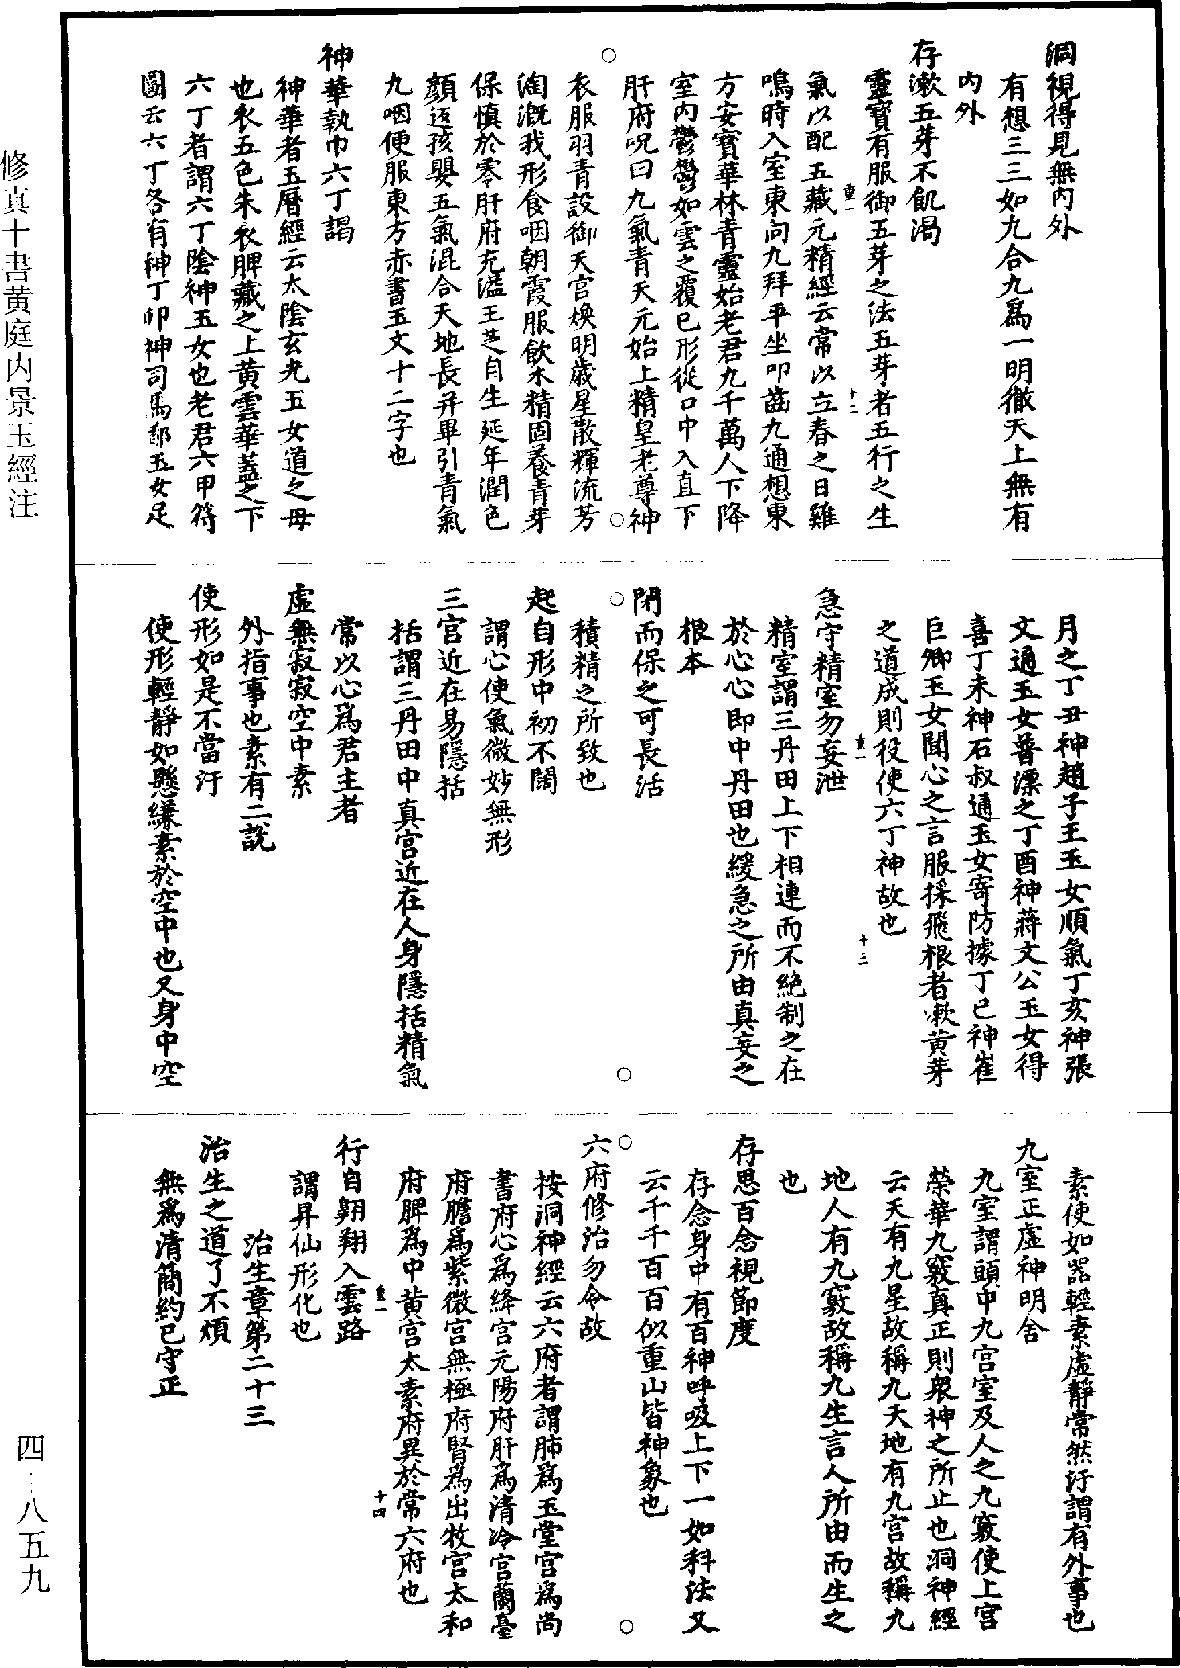 洞視得見無內外
有想三三如九合九為一明徹天上無有
內外
存漱五芽不飢渴
靈寶有服御五芽之法五芽者五行之生
氣以配五藏元精經云常以立春之日雞
鳴時入室東向九拜平坐叩齒九通想東
方安寶華林青靈始老君九千萬人下降
室內鬱鬱如雲之覆已形從口中入直下
肝府呪曰九氣青天元始上精皇老尊神
衣服羽青設御天宮煥明歲星散輝流芳
淘溉我形食咽朝霞服飲木精固養青芽
保慎於零肝府充溢玉芝自生延年潤色
顏返孩嬰五氣混合天地長并畢引青氣
九咽便服東方赤書玉文十二字也
神華執巾六丁謁
神華者五曆經云太陰玄光玉女道之母
也衣五色朱衣脾藏之上黃雲華蓋之下
六丁者謂六丁陰神玉女也老君六甲符
圖云六丁各有神丁卯神司馬鄒玉女足
月之丁丑神趙子玉玉女順氣丁亥神張
文通玉女普漂之丁酉神蔣文公玉女得
喜丁未神石叔通玉女寄防據丁巳神崔
巨卿玉女開心之言服採飛根者漱黃芽
之道成則役使六丁神故也
急守精室勿妄泄
精室謂三丹田上下相連而不絕制之在
於心心即中丹田也緩急之所由真妄之
根本
閉而保之可長活
積精之所致也
起自形中初不闊
謂心使氣微妙無形
三官近在易隱括
括謂三丹田中真宮近在人身隱括精氣
常以心為君主者
虛無寂寂空中素
外指事也素有二說
使形如是不當汙
使形輕靜如懸縑素於空中也又身中空
素使如器輕素虛靜常然汙謂有外事也
九室正虛神明舍
九室謂頭中九宮室及人之九竅使上宮
榮華九竅真正則眾神之所止也洞神經
云天有九星故稱九天地有九宮故稱九
地人有九竅故稱九生言人所由而生之
也
存思百念視節度
存念身中有百神呼吸上下一如科法又
云千千百百似重山皆神象也
六府修治勿令故
按洞神經云六府者謂肺為玉堂宮為尚
書府心為絳宮元陽府肝為清冷宮蘭臺
府膽為紫微宮無極府腎為出牧宮太和
府脾為中黃宮太素府異於常六府也
行自翱翔入雲路
謂昇仙形化也
治生章第二十三
治生之道了不煩
無為清簡約己守正
修真十書黃庭內景玉經注
四…八五九
重一
十二
重一
十三
重一
十四